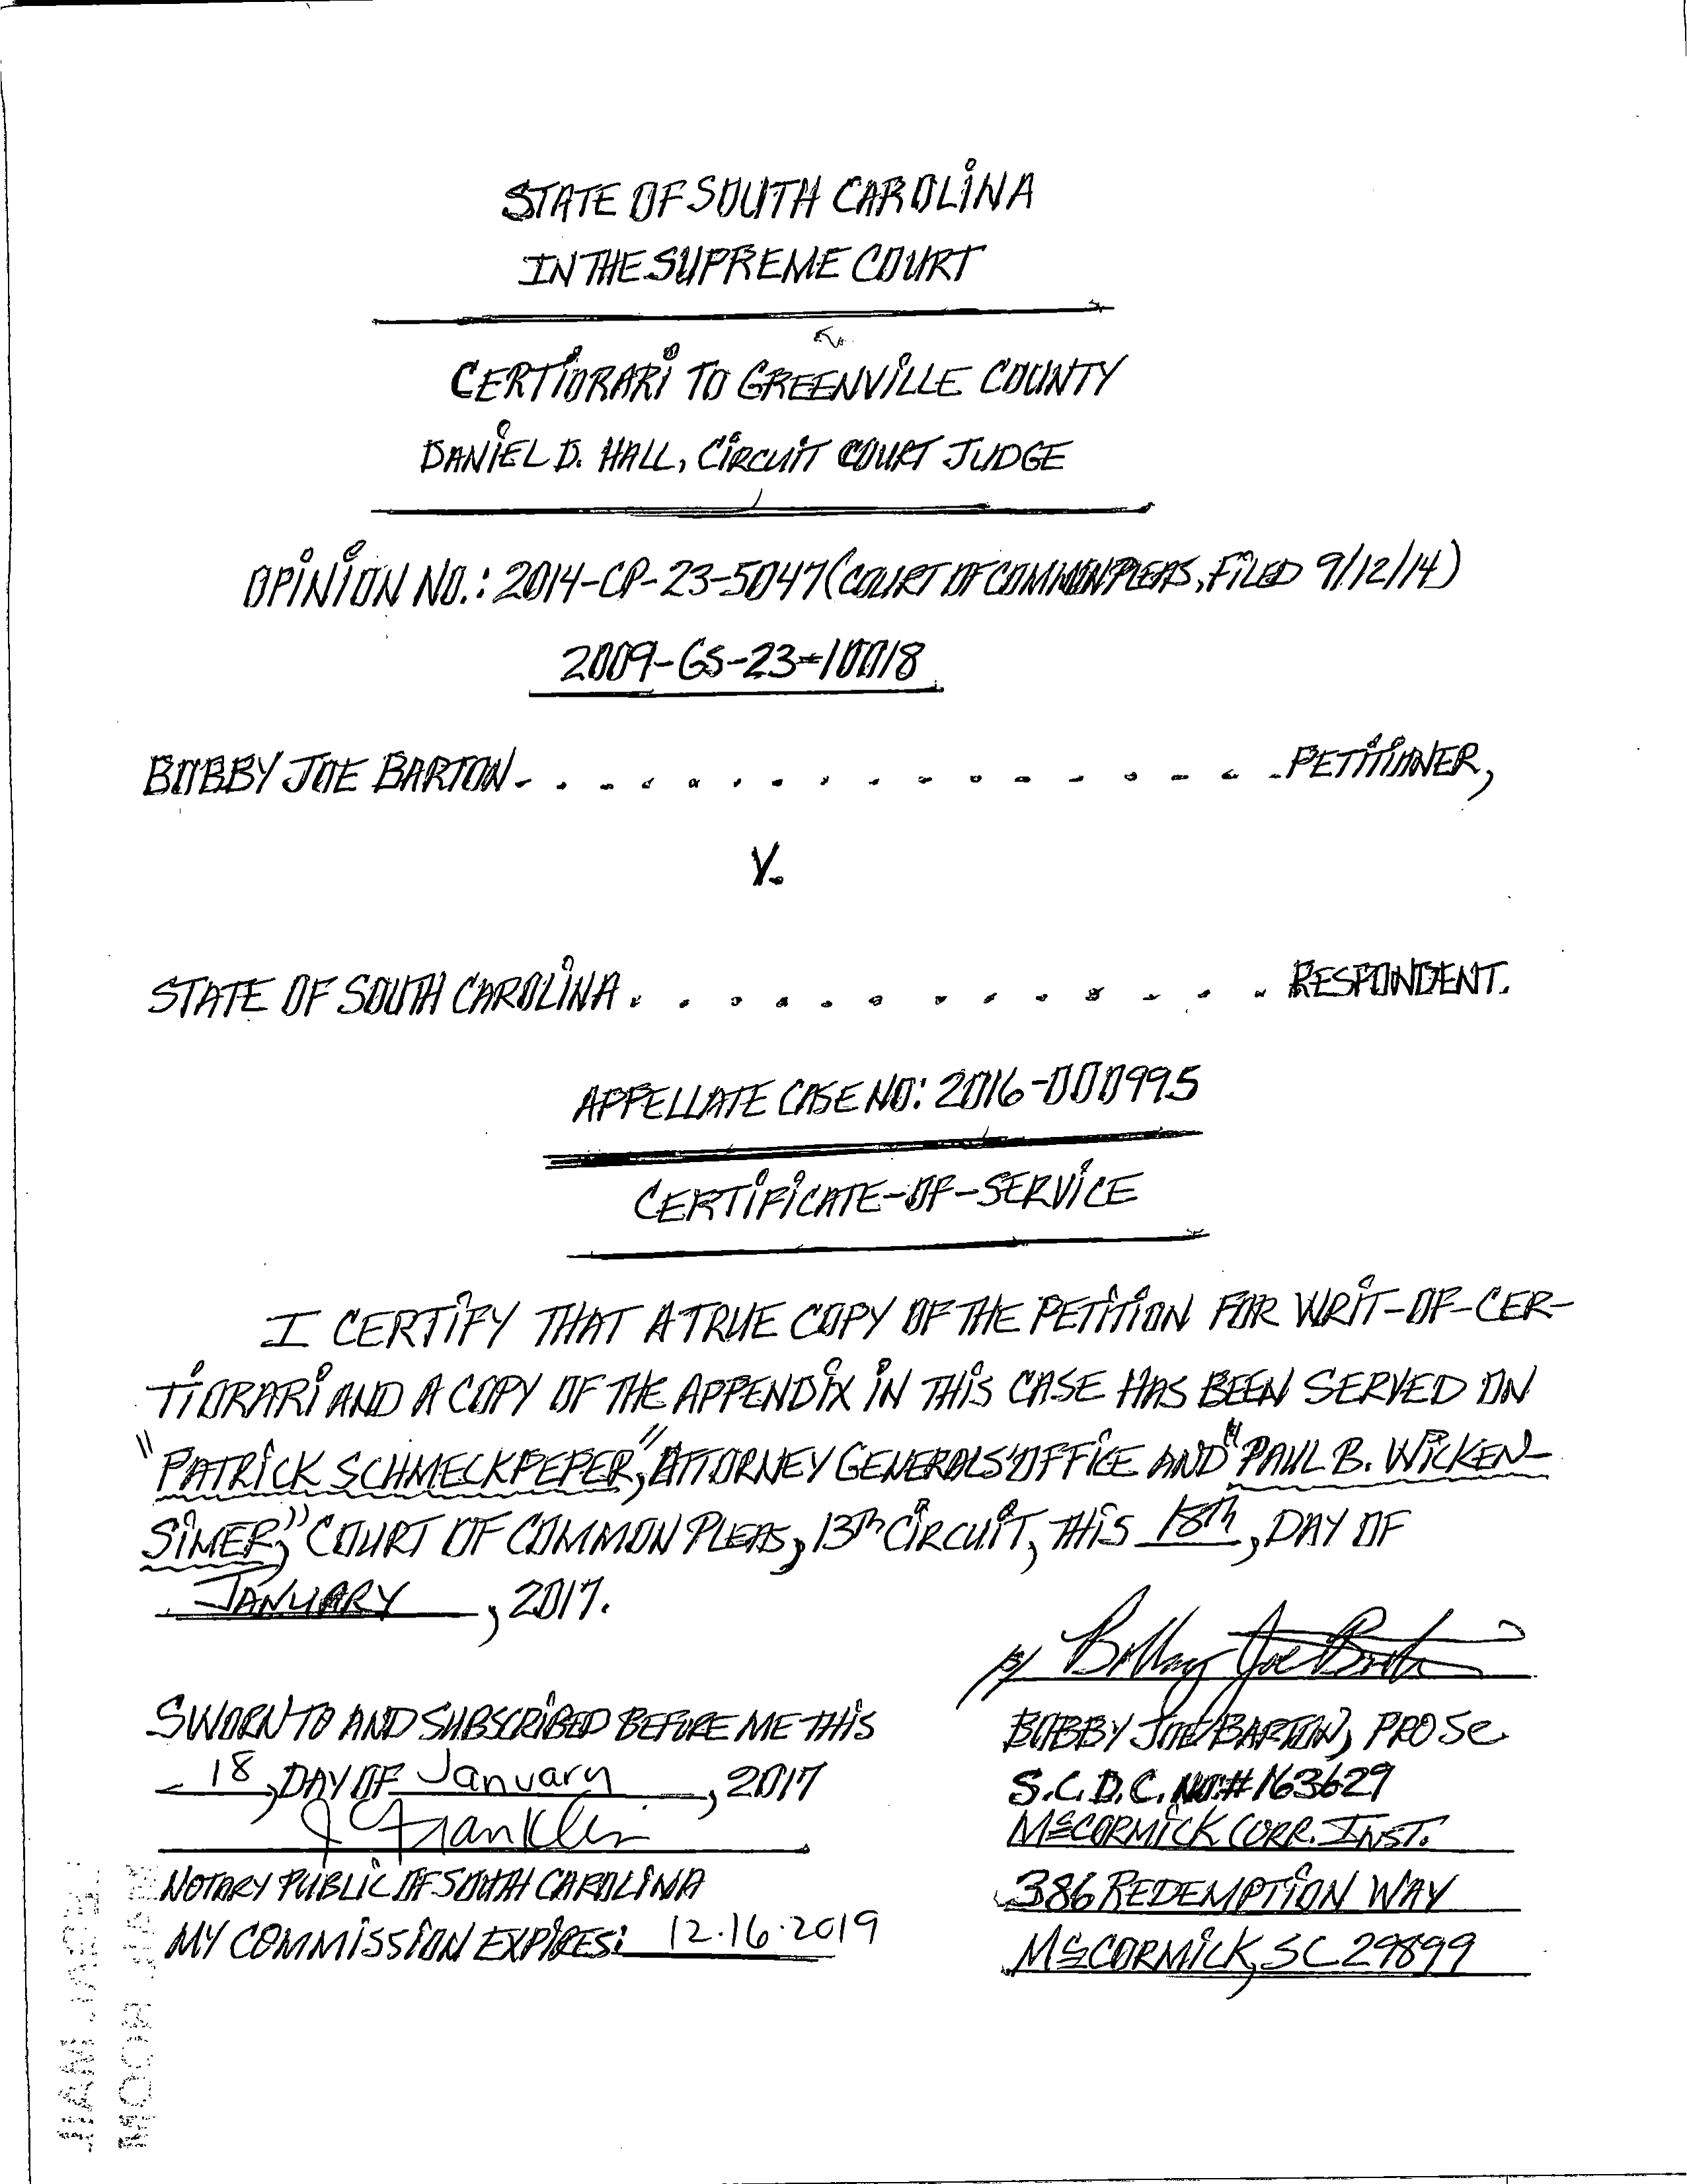 STATE OF SOUTH CAROLINA
IN THE SUPREME COURT
CERTIORARI TO GREENVILLE COUNTY
DANIEL D. HALL, CIRCUIT COURT JUDGE
OPINION NO.: 2014-CP-23-5047 (COURT OF COMMON PLEAS, FILED 9/12/14)
2009-GS-23-10018
BOBBY JOE BARTON . . . . . . . . . . . . . . . . . . PETITIONER,
V.
STATE OF SOUTH CAROLINA . . . . . . . . . . . . . . RESPONDENT.
APPELLATE CASE NO: 2016-000995
CERTIFICATE-OF-SERVICE
I CERTIFY THAT A TRUE COPY OF THE PETITION FOR WRIT-OF-CER-
TIORARI AND A COPY OF THE APPENDIX IN THIS CASE HAS BEEN SERVED ON
"PATRICK SCHMECKPEPER," ATTORNEY GENERALS' OFFICE AND "PAUL B. WICKEN-
SIMER," COURT OF COMMON PLEAS, 13Th CIRCUIT, THIS 18th, DAY OF
JANUARY, 2017.
/s/ Bobby Joe Barton
SWORN TO AND SUBSCRIBED BEFORE ME THIS
18, DAY OF January, 2017
J Franklin
NOTARY PUBLIC OF SOUTH CAROLINA
MY COMMISSION EXPIRES: 12.16.2019
BOBBY JOE BARTON, PRO SE
S.C.D.C. NO.# 163629
McCORMICK CORR. INST.
386 REDEMPTION WAY
McCORMICK, SC 29899
MAIL ROOM